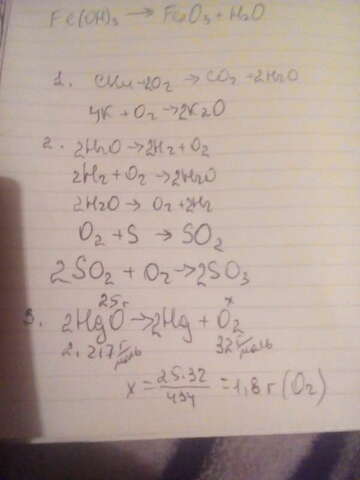 Fe(OH)₃ → Fe₂O₃ + H₂O
1. CH₄ + 2O₂ → CO₂ + 2H₂O
4K + O₂ → 2K₂O
2. 2H₂O → 2H₂ + O₂
2H₂ + O₂ → 2H₂O
2H₂O → O₂ + 2H₂
O₂ + S → SO₂
2SO₂ + O₂ → 2SO₃
25г x
3. 2HgO → 2Hg + O₂
2·217 г/моль 32 г/моль
x = 25·32/434 = 1,8 г (O₂)